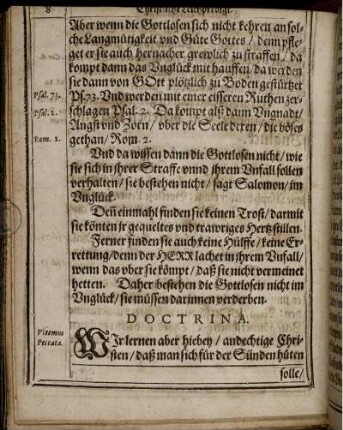 8 Christliche Leichpredigt.
Aber wenn die Gottlosen sich nicht kehren an sol-
che Langmütigkeit vnd Güte Gottes / denn pfle-
get er sie auch hernacher grewlich zu straffen / da
kompt dann das Vnglück mit hauffen / da werden
sie dann von GOtt plötzlich zu Boden gestürtzet
Psal. 73. Ps. 73. Vnd werden mit einer eisseren Ruthen zer-
Psal. 2. schlagen Psal. 2. Da kompt alß dann Vngnadt /
Angst vnd Zorn / vber die Seele deren / die böses
Rom. 2. gethan / Rom. 2.
Vnd da wissen dann die Gottlosen nicht / wie
sie sich in jhrer Straffe vnnd jhrem Vnfall sollen
verhalten / sie bestehen nicht / sagt Salomon / im
Vnglück.
Deñ einmahl finden sie keinen Trost / darmit
sie könten jr gequeltes vnd trawriges Hertz stillen.
Ferner finden sie auch keine Hülffe / keine Er-
rettung / denn der HERR lachet in jhrem Vnfall /
wenn das vber sie kömpt / daß sie nicht vermeinet
hetten. Daher bestehen die Gottlosen nicht im
Vnglück / sie müssen darinnen verderben.
DOCTRINA.
Vitamus
Peccata.
WJr lernen aber hiebey / andechtige Chri-
sten / daß man sich für der Sünden hüten
solle /